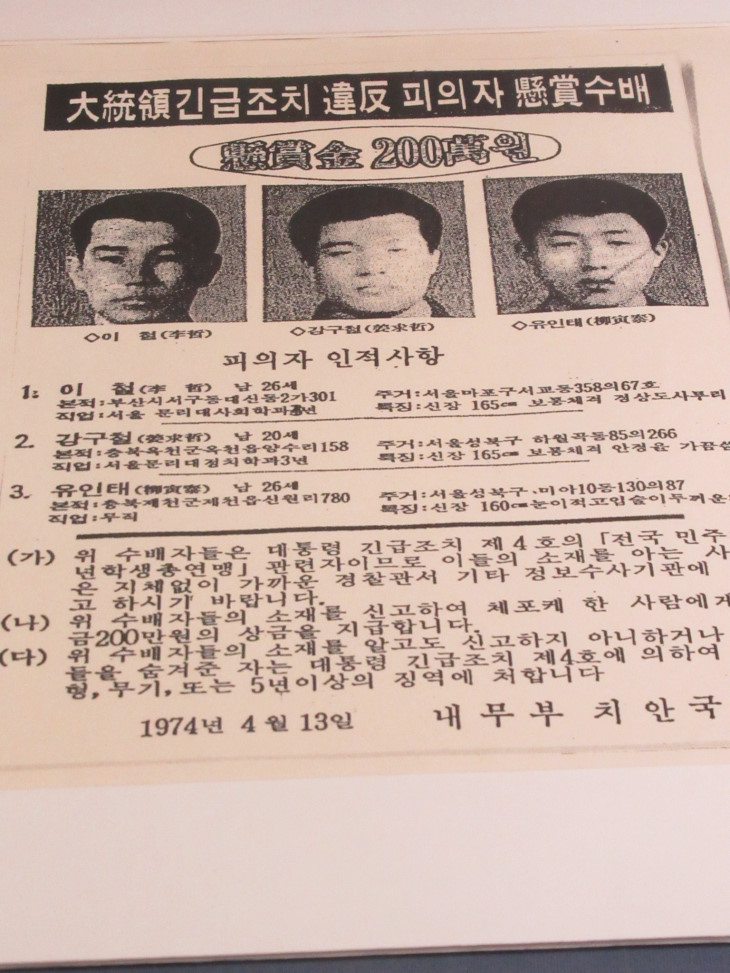 大統領긴급조치 違反 피의자 懸賞수배
懸賞金 200萬원
◇이 철(李哲)
◇강구철(姜求哲)
◇유인태(柳寅泰)
피의자 인적사항
1. 이 철(李 哲) 남 26세
본적:부산시서구동대신동2가301 주거:서울마포구서교동358의67호
직업:서울 문리대사회학과3년 특징:신장 165㎝ 보통체격 경상도사투리
2. 강구철(姜求哲) 남 20세
본적:충북옥천군옥천읍양수리158 주거:서울성북구 하월곡동85의266
직업:서울문리대정치학과3년 특징:신장 165㎝ 보통체격 안경을 가끔
3. 유인태(柳寅泰) 남 26세
본적:충북제천군제천읍신월리780 주거:서울성북구.미아10동130의87
직업:무직 특징:신장 160㎝눈이적고입술이두꺼운
(가) 위 수배자들은 대통령 긴급조치 제4호의 「전국 민주
년학생총연맹」 관련자이므로 이들의 소재를 아는 사
은 지체없이 가까운 경찰관서 기타 정보수사기관에
고 하시기 바랍니다.
(나) 위 수배자들의 소재를 신고하여 체포케 한 사람에게
금200만원의 상금을 지급합니다.
(다) 위 수배자들의 소재를 알고도 신고하지 아니하거나
들을 숨겨준 자는 대통령 긴급조치 제4호에 의하여
형,무기,또는 5년이상의 징역에 처합니다
1974년 4월 13일 내무부 치안국